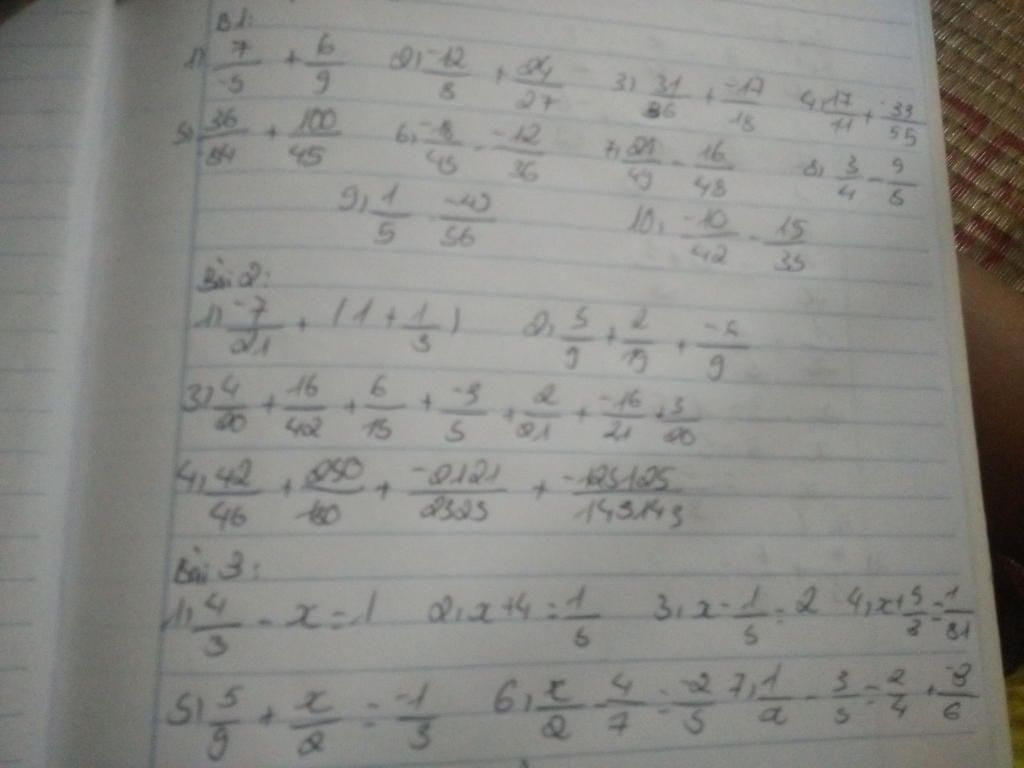 B1:
1) 7/-5 + 6/9 2, -12/8 + 24/27 3, 31/36 + -17/18 4, 17/11 + -33/55
5, 36/84 + 100/45 6, -8/45 - -12/36 7, 21/49 - 16/48 8, 3/4 - 9/8
9, 1/5 - -49/56 10, -10/42 - 15/35
Bài 2:
1) -7/21 + (1 + 1/3) 2, 5/9 + 2/19 + -5/9
3) 4/20 + 16/42 + 6/15 + -3/5 + 2/21 + -16/21 + 3/20
4, 42/46 + 250/180 + -2121/2323 + -125125/143143
Bài 3:
1, 4/3 - x = 1 2, x + 4 = 1/5 3, x - 1/5 = 2 4, x + 5/3 = 1/81
5) 5/9 + x/2 = -1/3 6, x/2 - 4/7 = -2/5 7, 1/2 - 3/5 = 2/4 + -3/6